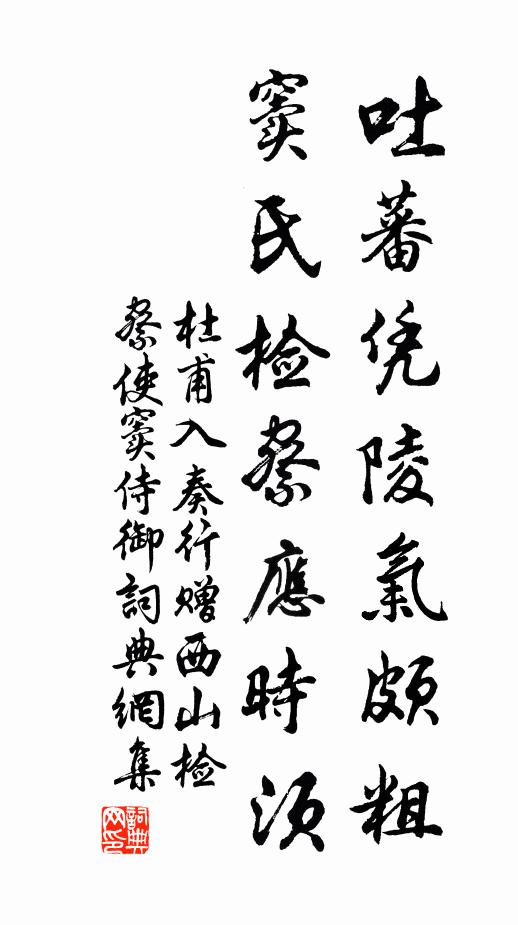 吐蕃凭陵氣颇粗
窦氏检察應時須
杜甫入奏行赠西山检
察使窦侍御詞典網集
詞典网印